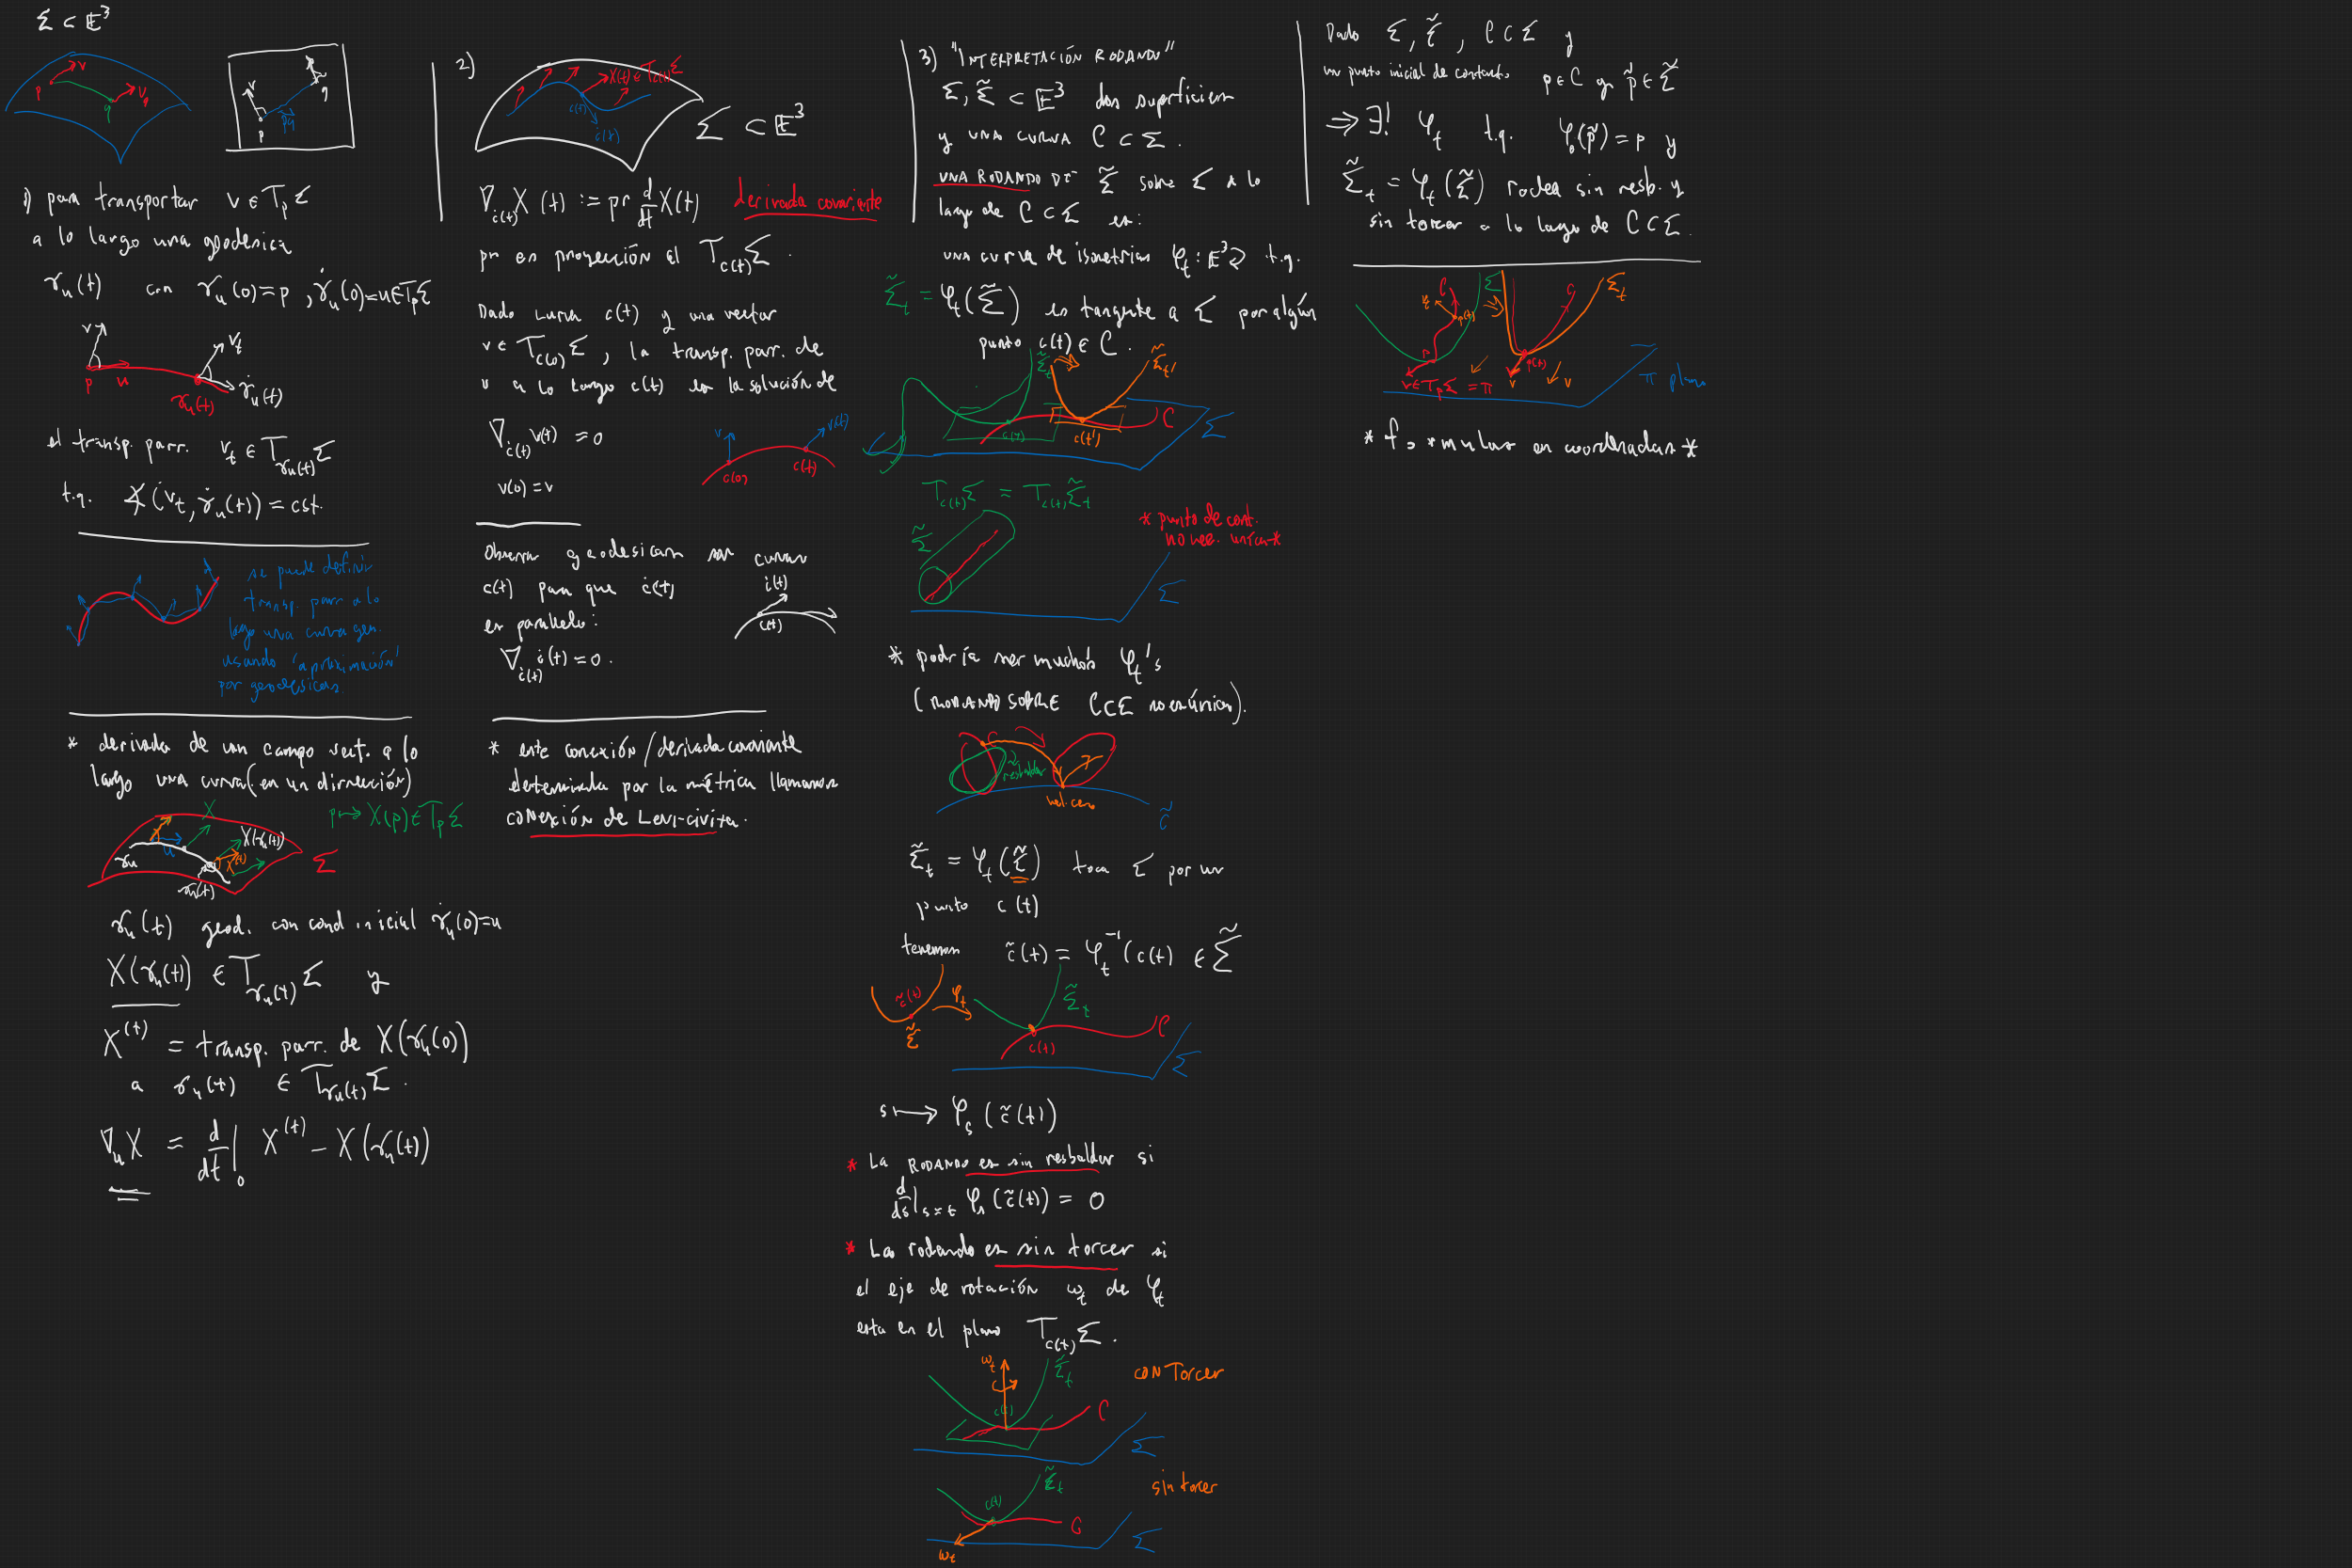 Σ ⊂ E³
v
p
q
v_q
v
p
pq
q
1) para transportar v ∈ T_p Σ
a lo largo una geodesica
γ_u(t) con γ_u(0) = p , γ̇_u(0) = u ∈ T_pΣ
v
p
u
v_t
γ_u(t)
γ̇_u(t)
el transp. parr. v_t ∈ T_{γ_u(t)} Σ
t.q. ∡(v_t, γ̇_u(t)) = cst.
se puede definir
transp. parr a lo
largo una curva gen.
usando 'aproximación'
por geodesicas.
* derivada de un campo vect. a lo
largo una curva (en un dirección)
X
p ↦ X(p) ∈ T_p Σ
γ_u
u
X(γ_u(t))
X^(t)
γ_u(t)
Σ
γ_u(t) geod. con cond inicial γ̇_u(0) = u
X(γ_u(t)) ∈ T_{γ_u(t)} Σ y
X^(t) = transp. parr. de X(γ_u(0))
a γ_u(t) ∈ T_{γ_u(t)} Σ.
∇_u X = d/dt|_0 X^(t) − X(γ_u(t))
2)
X(t) ∈ T_{c(t)}Σ
c(t)
ċ(t)
Σ ⊂ E³
∇_{ċ(t)} X(t) := pr d/dt X(t) derivada covariante
pr es proyección al T_{c(t)} Σ.
Dado curva c(t) y una vector
v ∈ T_{c(0)} Σ, la transp. parr. de
v a lo largo c(t) es la solución de
∇_{ċ(t)} v(t) = 0
v(0) = v
v
v(t)
c(0)
c(t)
Observa geodesicas son curvas
c(t) para que ċ(t)
es paralelo:
∇_{ċ(t)} ċ(t) = 0.
ċ(t)
c(t)
* este conexión/derivada covariante
determinada por la métrica llamamos
conexión de Levi-civita.
3) "INTERPRETACIÓN RODANDO"
Σ, Σ̃ ⊂ E³ dos superficies
y una curva C ⊂ Σ.
UNA RODANDO DE Σ̃ sobre Σ a lo
largo de C ⊂ Σ es:
una curva de isometrias φ_t : E³ ⟲ t.q.
Σ̃_t = φ_t(Σ̃) es tangente a Σ por algún
punto c(t) ∈ C.
Σ̃_t
Σ̃_t'
c(t)
c(t')
C
Σ
T_{c(t)} Σ = T_{c(t)} Σ̃_t
Σ̃
* punto de cont.
no nec. unica *
Σ
* podría ser muchos φ_t's
(RODANDO SOBRE C ⊂ Σ no es única).
resbalar
vel. cero
c̃
Σ̃_t = φ_t(Σ̃) toca Σ por un
punto c(t)
tenemos c̃(t) = φ_t^{-1}(c(t) ∈ Σ̃
c̃(t)
φ_t
Σ̃
Σ̃_t
c(t)
C
Σ
s ↦ φ_s(c̃(t))
* La RODANDO es sin resbalar si
d/ds|_{s=t} φ_s(c̃(t)) = 0
* La rodando es sin torcer si
el eje de rotación ω_t de φ_t
esta en el plano T_{c(t)} Σ.
ω_t
Σ̃_t
c(t)
C
Σ
CON Torcer
Σ̃_t
c(t)
C
Σ
ω_t
sin torcer
Dado Σ, Σ̃, C ⊂ Σ y
un punto inicial de contacto p ∈ C y p̃ ∈ Σ̃
⇒ ∃! φ_t t.q. φ_0(p̃) = p y
Σ̃_t = φ_t(Σ̃) rodea sin resb. y
sin torcer a lo largo de C ⊂ Σ.
C
Σ
p(t)
v ∈ T_pΣ = π
C
Σ_t
p(t)
v
v
π plano
* fórmulas en coordenadas *